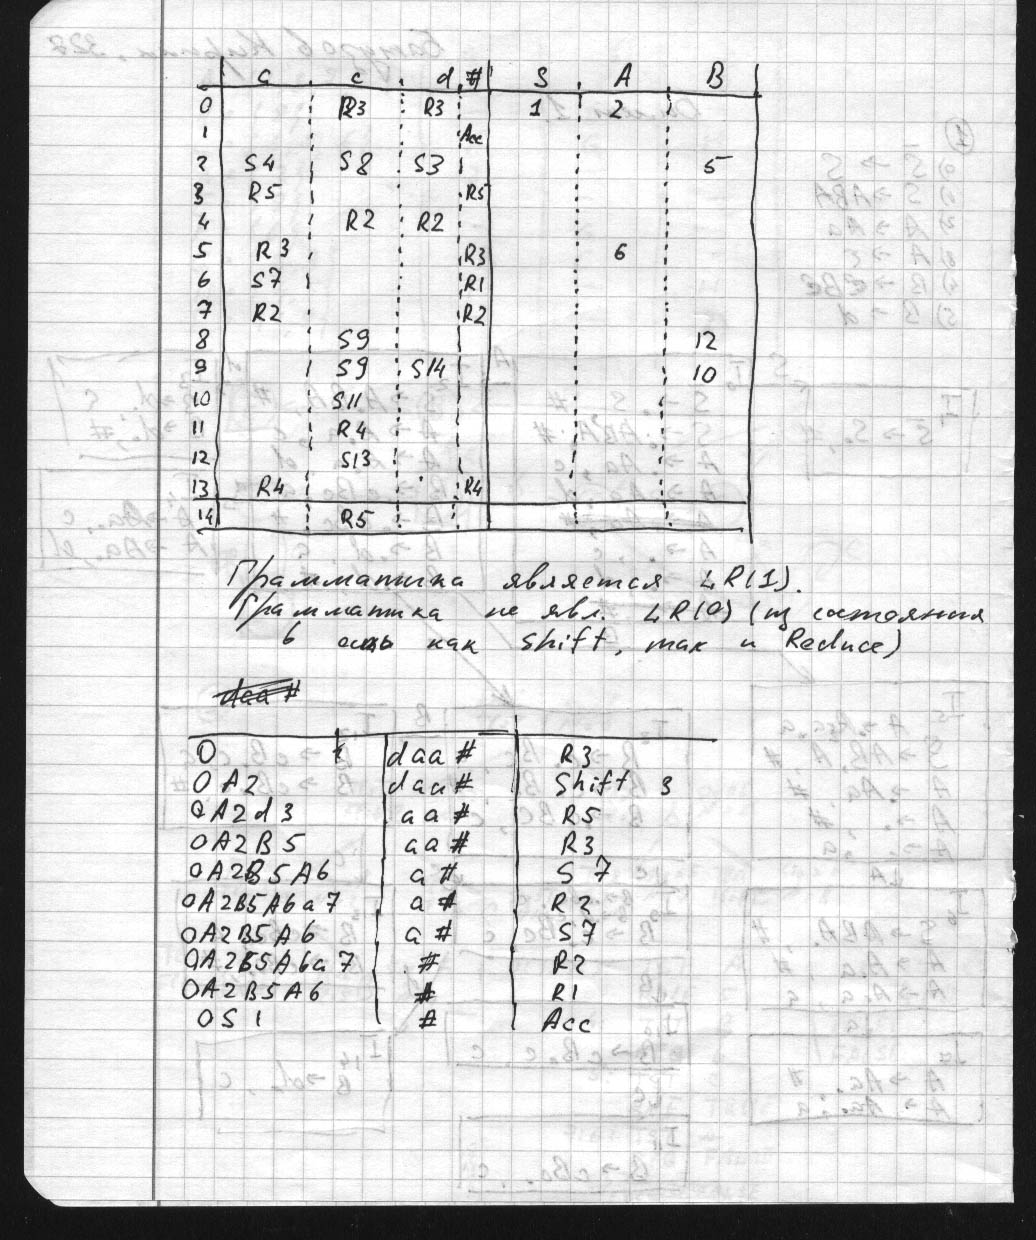 a c d # S A B
0 R3 R3 1 2
1 Acc
2 S4 S8 S3 5
3 R5 R5
4 R2 R2
5 R3 R3 6
6 S7 R1
7 R2 R2
8 S9 12
9 S9 S14 10
10 S11
11 R4
12 S13
13 R4 R4
14 R5
Грамматика является LR(1).
Грамматика не явл. LR(0) (из состояния
6 есть как Shift, так и Reduce)
daa #
0 daa # R3
0A2 daa# Shift 3
0A2d3 aa# R5
0A2B5 aa# R3
0A2B5A6 a# S7
0A2B5A6a7 a# R2
0A2B5A6 a# S7
0A2B5A6a7 # R2
0A2B5A6 # R1
0S1 # Acc